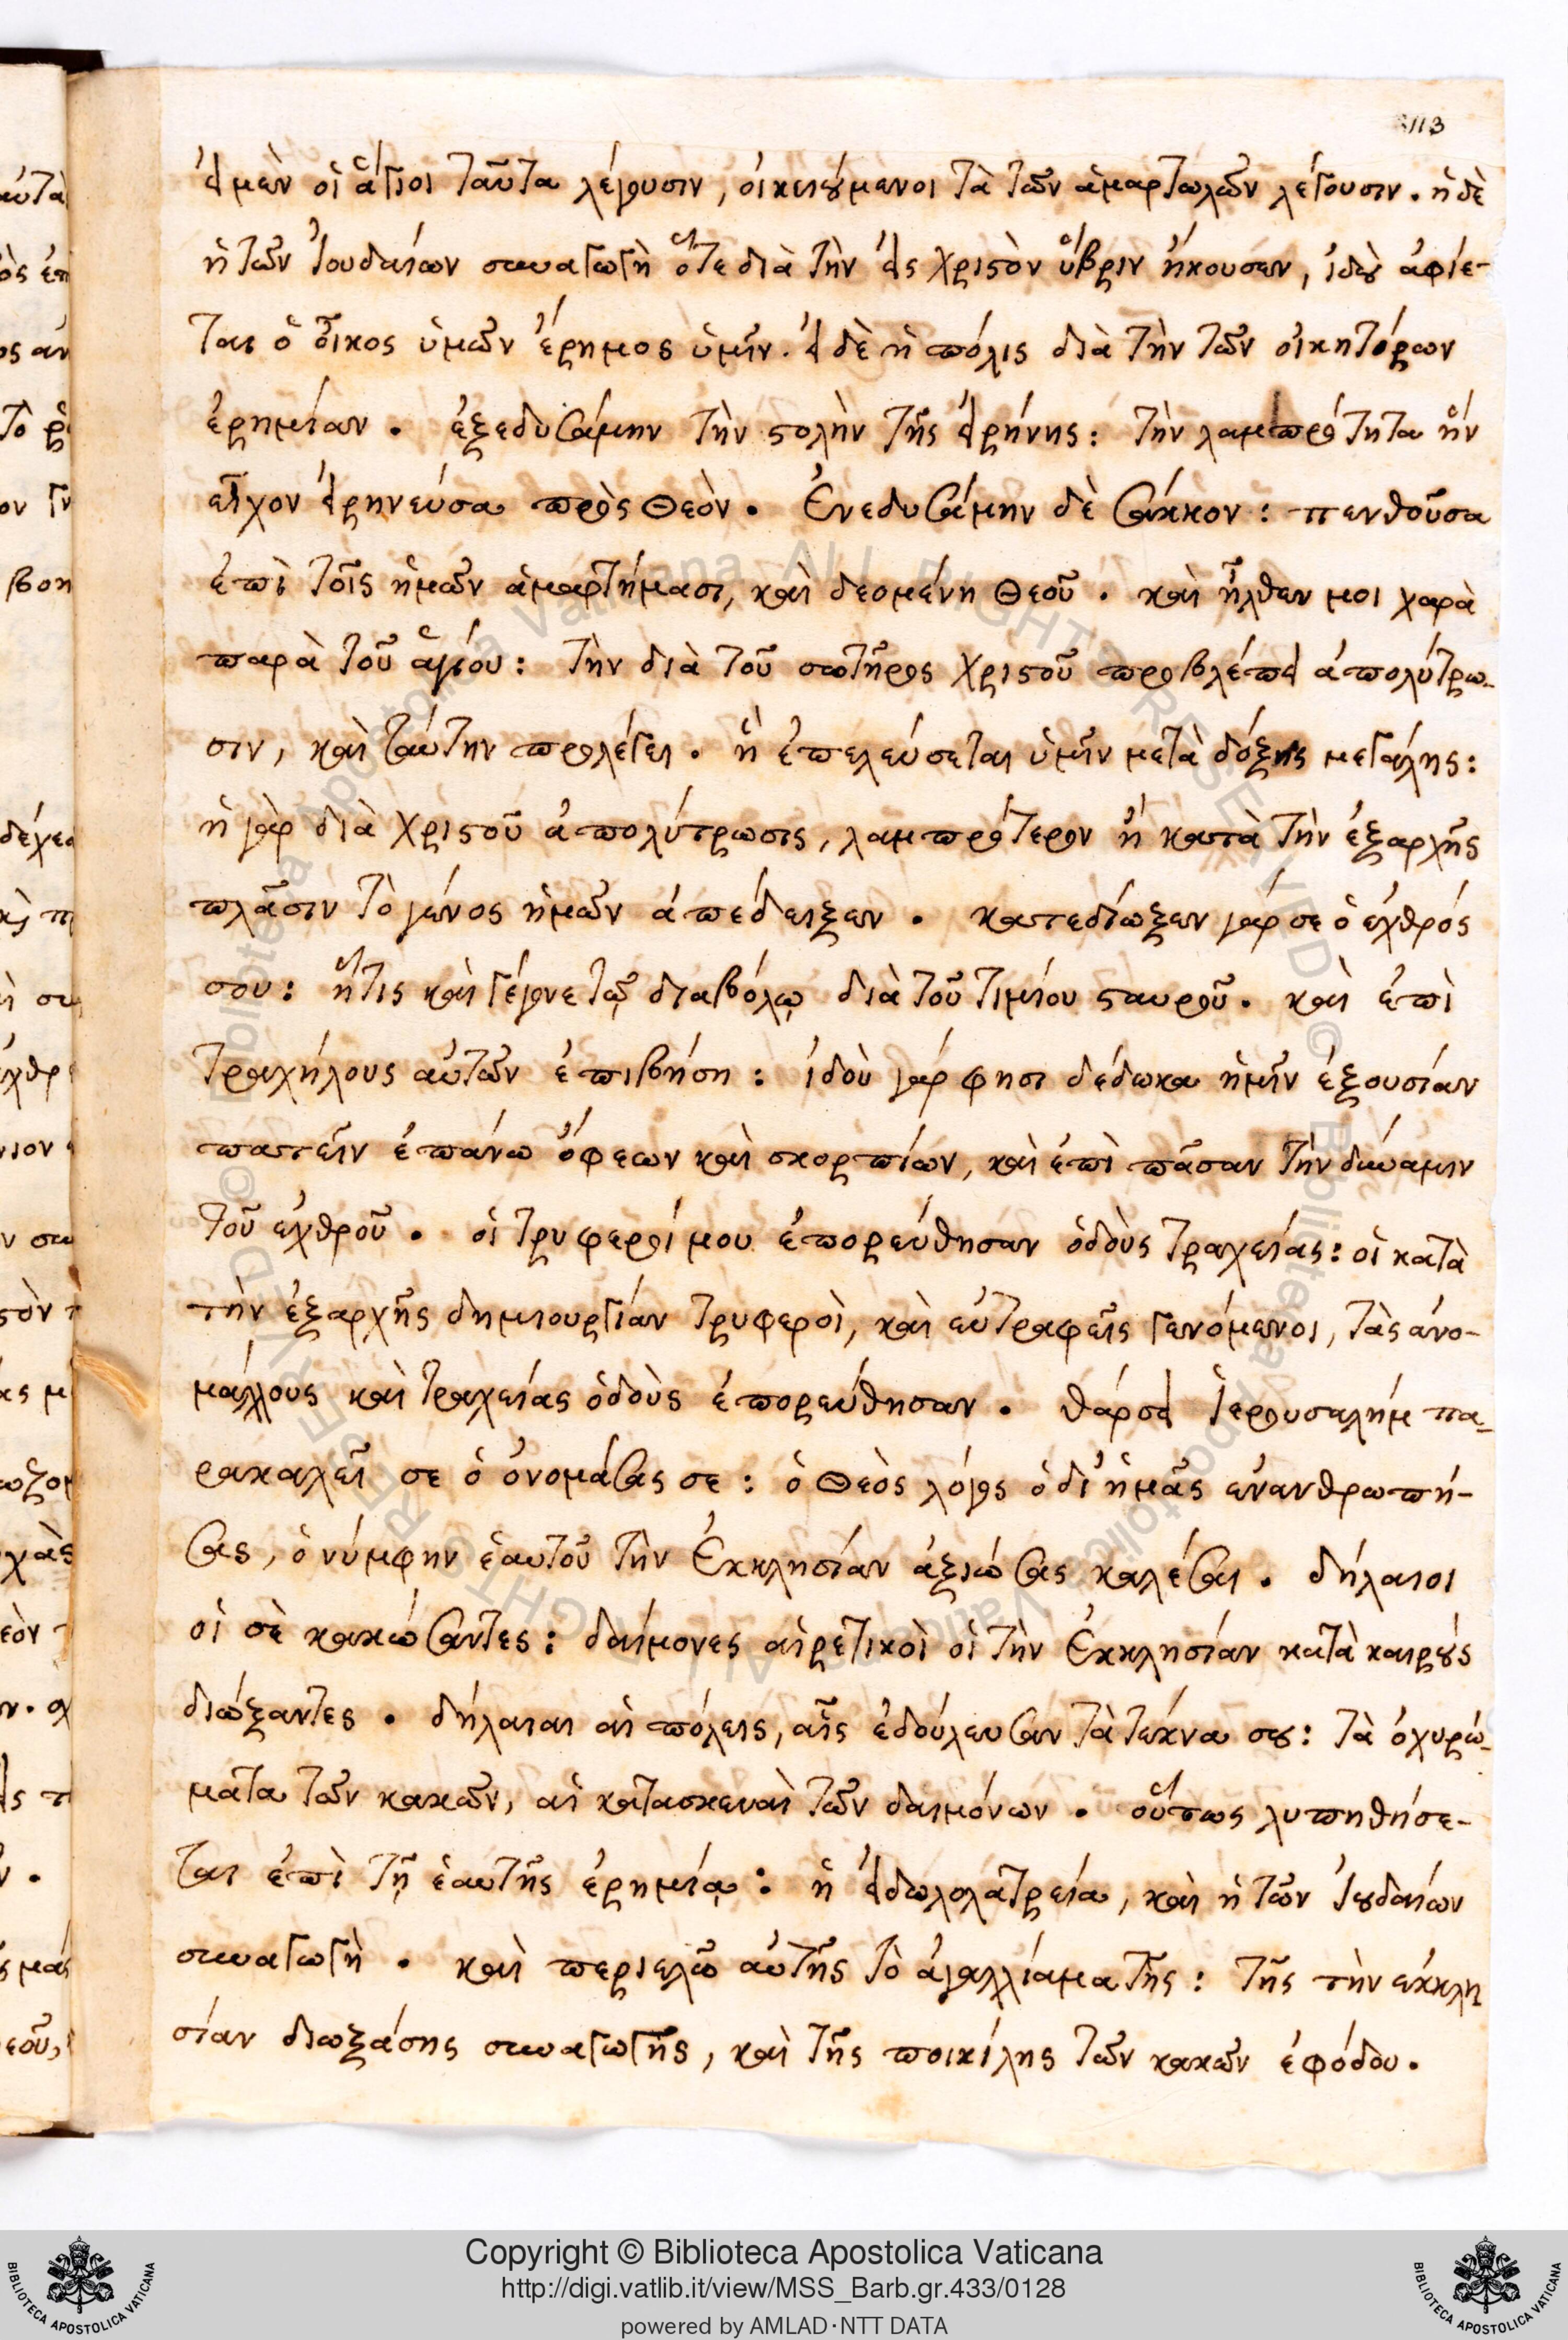 113
εἰ μὲν οἱ ἅγιοι ταῦτα λέγουσιν, οἰκειούμενοι τὰ τῶν ἁμαρτωλῶν λέγουσιν. ἡ δὲ
ἡ τῶν Ἰουδαίων συναγωγὴ ὅτε διὰ τὴν εἰς Χριστὸν ὕβριν ἤκουσεν, ἰδοὺ ἀφίε-
ται ὁ οἶκος ὑμῶν ἔρημος ὑμῖν. εἰ δὲ ἡ πόλις διὰ τὴν τῶν οἰκητόρων
ἐρημίαν. ἐξεδυσάμην τὴν στολὴν τῆς εἰρήνης: τὴν λαμπρότητα ἣν
εἶχον εἰρηνεύσα πρὸς Θεὸν. Ἐνεδυσάμην δὲ σάκκον: πενθοῦσα
ἐπὶ τοῖς ἡμῶν ἁμαρτήμασι, καὶ δεομένη Θεοῦ. καὶ ἦλθεν μοι χαρὰ
παρὰ τοῦ ἁγίου: τὴν διὰ τοῦ σωτῆρος Χριστοῦ προβλέπει ἀπολύτρω-
σιν, καὶ ταύτην προλέγει. ἣ ἐπελεύσεται ὑμῖν μετὰ δόξης μεγάλης:
ἡ γὰρ διὰ Χριστοῦ ἀπολύτρωσις, λαμπρότερον ἢ κατὰ τὴν ἐξαρχῆς
πλᾶσιν τὸ γένος ἡμῶν ἀπέδειξεν. κατεδίωξεν γάρ σε ὁ ἐχθρός
σου: ἥτις καὶ γέγονε τῷ διαβόλῳ διὰ τοῦ τιμίου σταυροῦ. καὶ ἐπὶ
τραχήλους αὐτῶν ἐπιβήση: ἰδοὺ γάρ φησι δέδωκα ἡμῖν ἐξουσίαν
πατεῖν ἐπάνω ὄφεων καὶ σκορπίων, καὶ ἐπὶ πᾶσαν τὴν δύναμιν
τοῦ ἐχθροῦ. οἱ τρυφεροί μου ἐπορεύθησαν ὁδοὺς τραχείας: οἱ κατὰ
τὴν ἐξαρχῆς δημιουργίαν τρυφεροὶ, καὶ εὐτραφεῖς γενόμενοι, τὰς ἀνο-
μάλλους καὶ τραχείας ὁδοὺς ἐπορεύθησαν. θάρσει Ἱερουσαλήμ πα-
ρακαλεῖ σε ὁ ὀνομάσας σε: ὁ Θεὸς λόγος ὁ δι' ἡμᾶς ἐνανθρωπή-
σας, ὁ νύμφην ἑαυτοῦ τὴν Ἐκκλησίαν ἀξιώσας καλέσαι. δήλαιοι
οἱ σὲ κακώσαντες: δαίμονες αἱρετικοὶ οἱ τὴν Ἐκκλησίαν κατὰ καιροὺς
διώξαντες. δήλαιαι αἱ πόλεις, αἷς ἐδούλευσαν τὰ τέκνα σου: τὰ ὀχυρώ-
ματα τῶν κακῶν, αἱ κατασκευαὶ τῶν δαιμόνων. οὕτως λυπηθήσε-
ται ἐπὶ τῇ ἑαυτῆς ἐρημίᾳ: ἡ εἰδωλολατρεία, καὶ ἡ τῶν Ἰουδαίων
συναγωγὴ. καὶ περιελῶ αὐτῆς τὸ ἀγαλλίαμα τῆς: τῆς τὴν ἐκκλη
σίαν διωξάσης συναγωγῆς, καὶ τῆς ποικίλης τῶν κακῶν ἐφόδου.
Copyright © Biblioteca Apostolica Vaticana
http://digi.vatlib.it/view/MSS_Barb.gr.433/0128
powered by AMLAD·NTT DATA